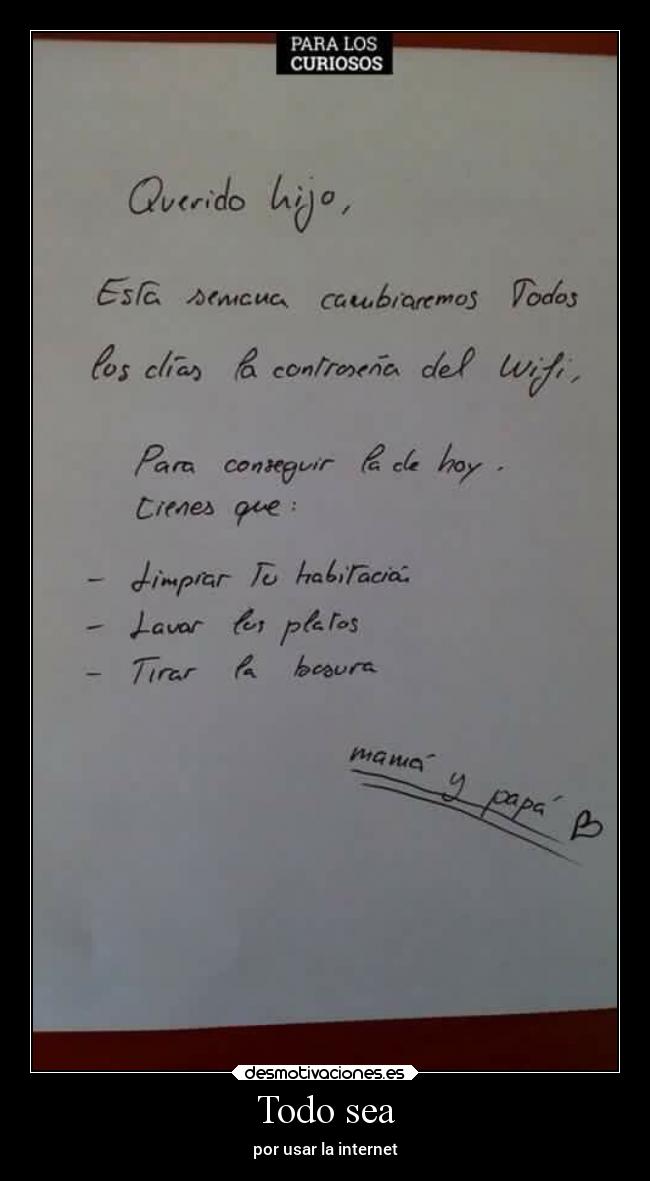 PARA LOS
CURIOSOS
Querido hijo,
Esta semana cambiaremos Todos
los días la contraseña del Wifi,
Para conseguir la de hoy.
tienes que:
- Limpiar Tu habitación
- Lavar los platos
- Tirar la basura
mamá y papá
desmotivaciones.es
Todo sea
por usar la internet